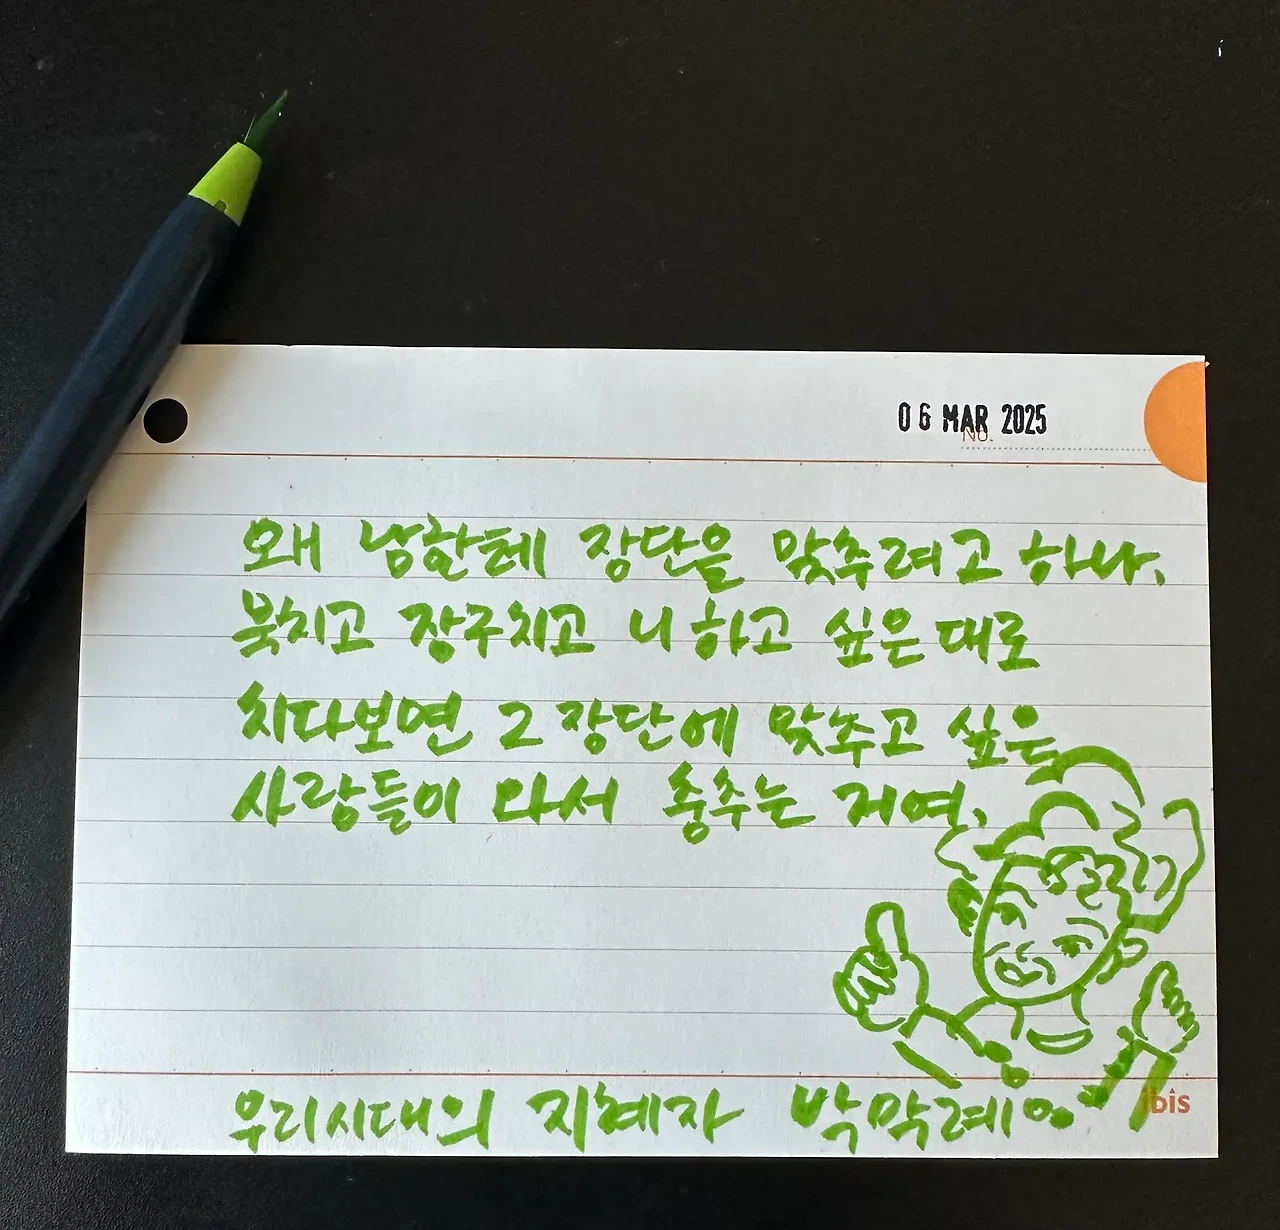 06 MAR 2025
No.
왜 남한테 장단을 맞추려고 하나.
북치고 장구치고 니 하고 싶은대로
치다보면 그 장단에 맞추고 싶은
사람들이 와서 춤추는 거여.
우리시대의 지혜자 박막례
ibis